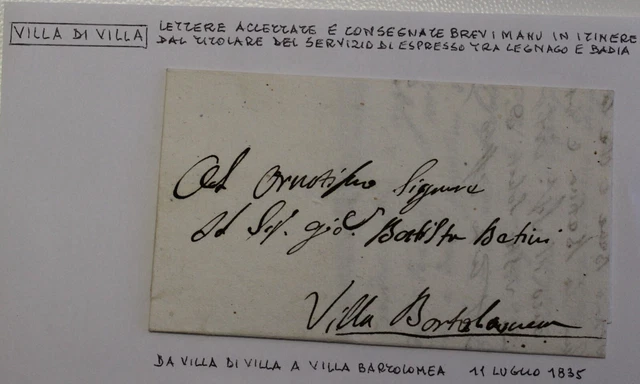 VILLA DI VILLA
LETTERE ACCETTATE E CONSEGNATE BREVI MANU IN ITINERE
DAL TITOLARE DEL SERVIZIO DI ESPRESSO TRA LEGNAGO E BADIA
Al Ornatismo Signore
Batista Betini
Villa Bortolamea
DA VILLA DI VILLA A VILLA BARTOLOMEA 11 LUGLIO 1835